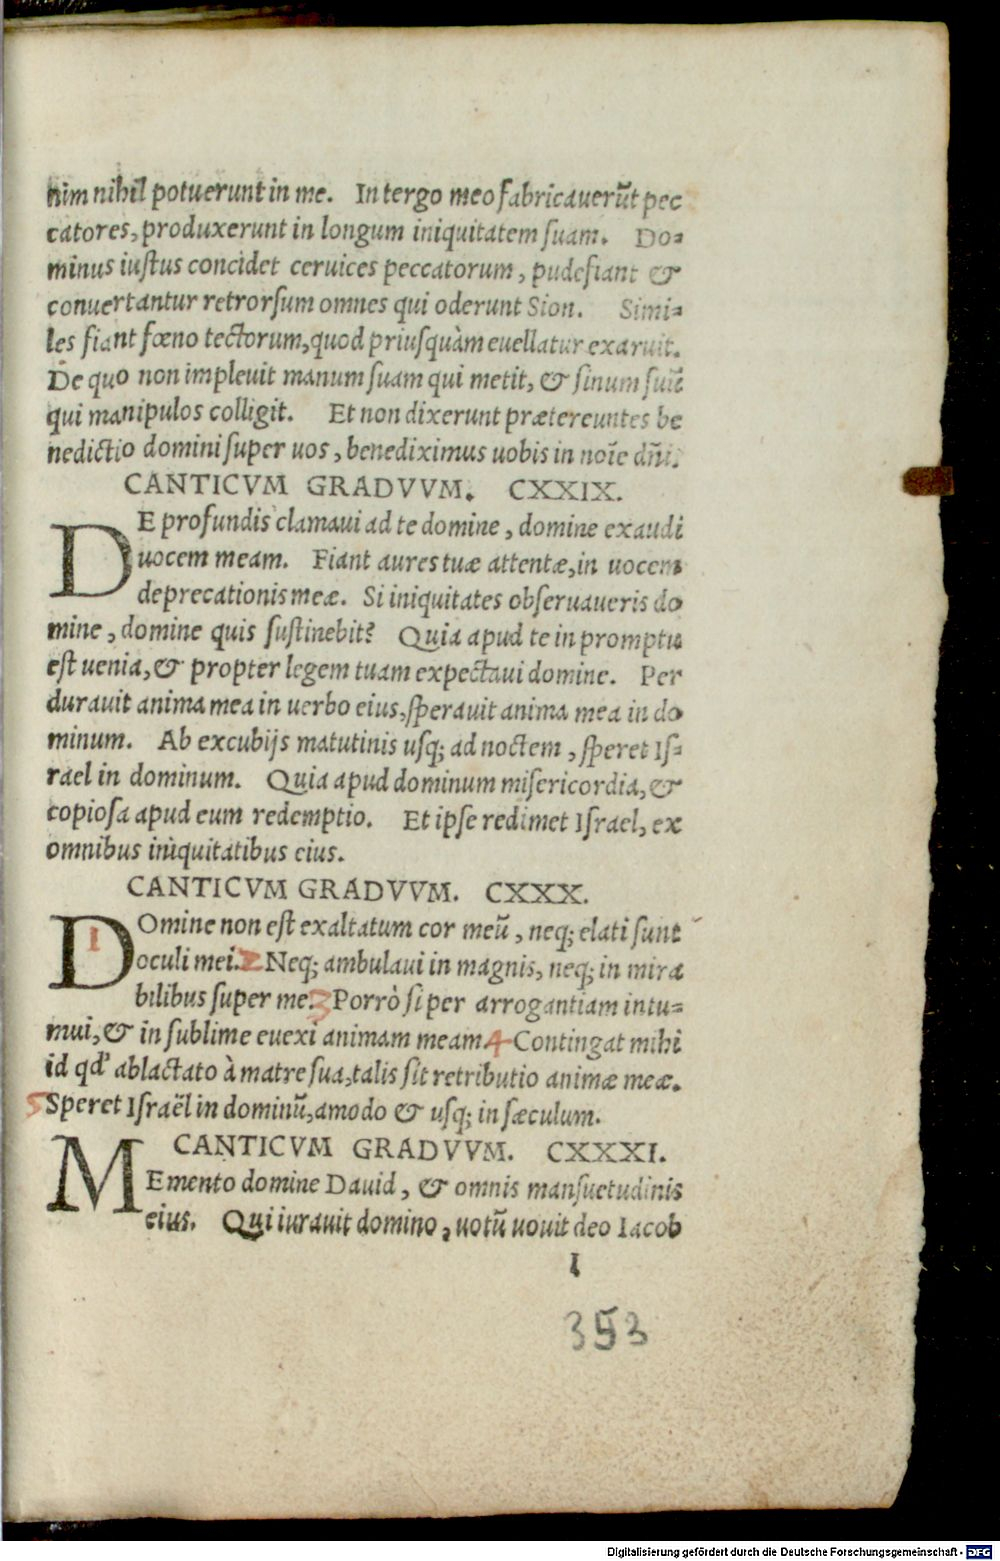 nim nihil potuerunt in me. In tergo meo fabricauerūt pec
catores, produxerunt in longum iniquitatem suam. Do-
minus iustus concidet ceruices peccatorum, pudefiant &
conuertantur retrorsum omnes qui oderunt Sion. Simi-
les fiant fœno tectorum, quod priusquàm euellatur exaruit.
De quo non impleuit manum suam qui metit, & sinum suū
qui manipulos colligit. Et non dixerunt prætereuntes be
nedictio domini super uos, benediximus uobis in noīe dn̄i.
CANTICVM GRADVVM. CXXIX.
DE profundis clamaui ad te domine, domine exaudi
uocem meam. Fiant aures tuæ attentæ, in uocem
deprecationis meæ. Si iniquitates obseruaueris do
mine, domine quis sustinebit? Quia apud te in promptu
est uenia, & propter legem tuam expectaui domine. Per
durauit anima mea in uerbo eius, sperauit anima mea in do
minum. Ab excubijs matutinis usq; ad noctem, speret Is-
rael in dominum. Quia apud dominum misericordia, &
copiosa apud eum redemptio. Et ipse redimet Israel, ex
omnibus iniquitatibus eius.
CANTICVM GRADVVM. CXXX.
1 DOmine non est exaltatum cor meū, neq; elati sunt
oculi mei. 2 Neq; ambulaui in magnis, neq; in mira
bilibus super me. 3 Porrò si per arrogantiam intu-
mui, & in sublime euexi animam meam. 4 Contingat mihi
id qd' ablactato à matre sua, talis sit retributio animæ meæ.
5 Speret Israël in dominū, amodo & usq; in sæculum.
CANTICVM GRADVVM. CXXXI.
MEmento domine Dauid, & omnis mansuetudinis
eius. Qui iurauit domino, uotū uouit deo Iacob
I
353
Digitalisierung gefördert durch die Deutsche Forschungsgemeinschaft - DFG